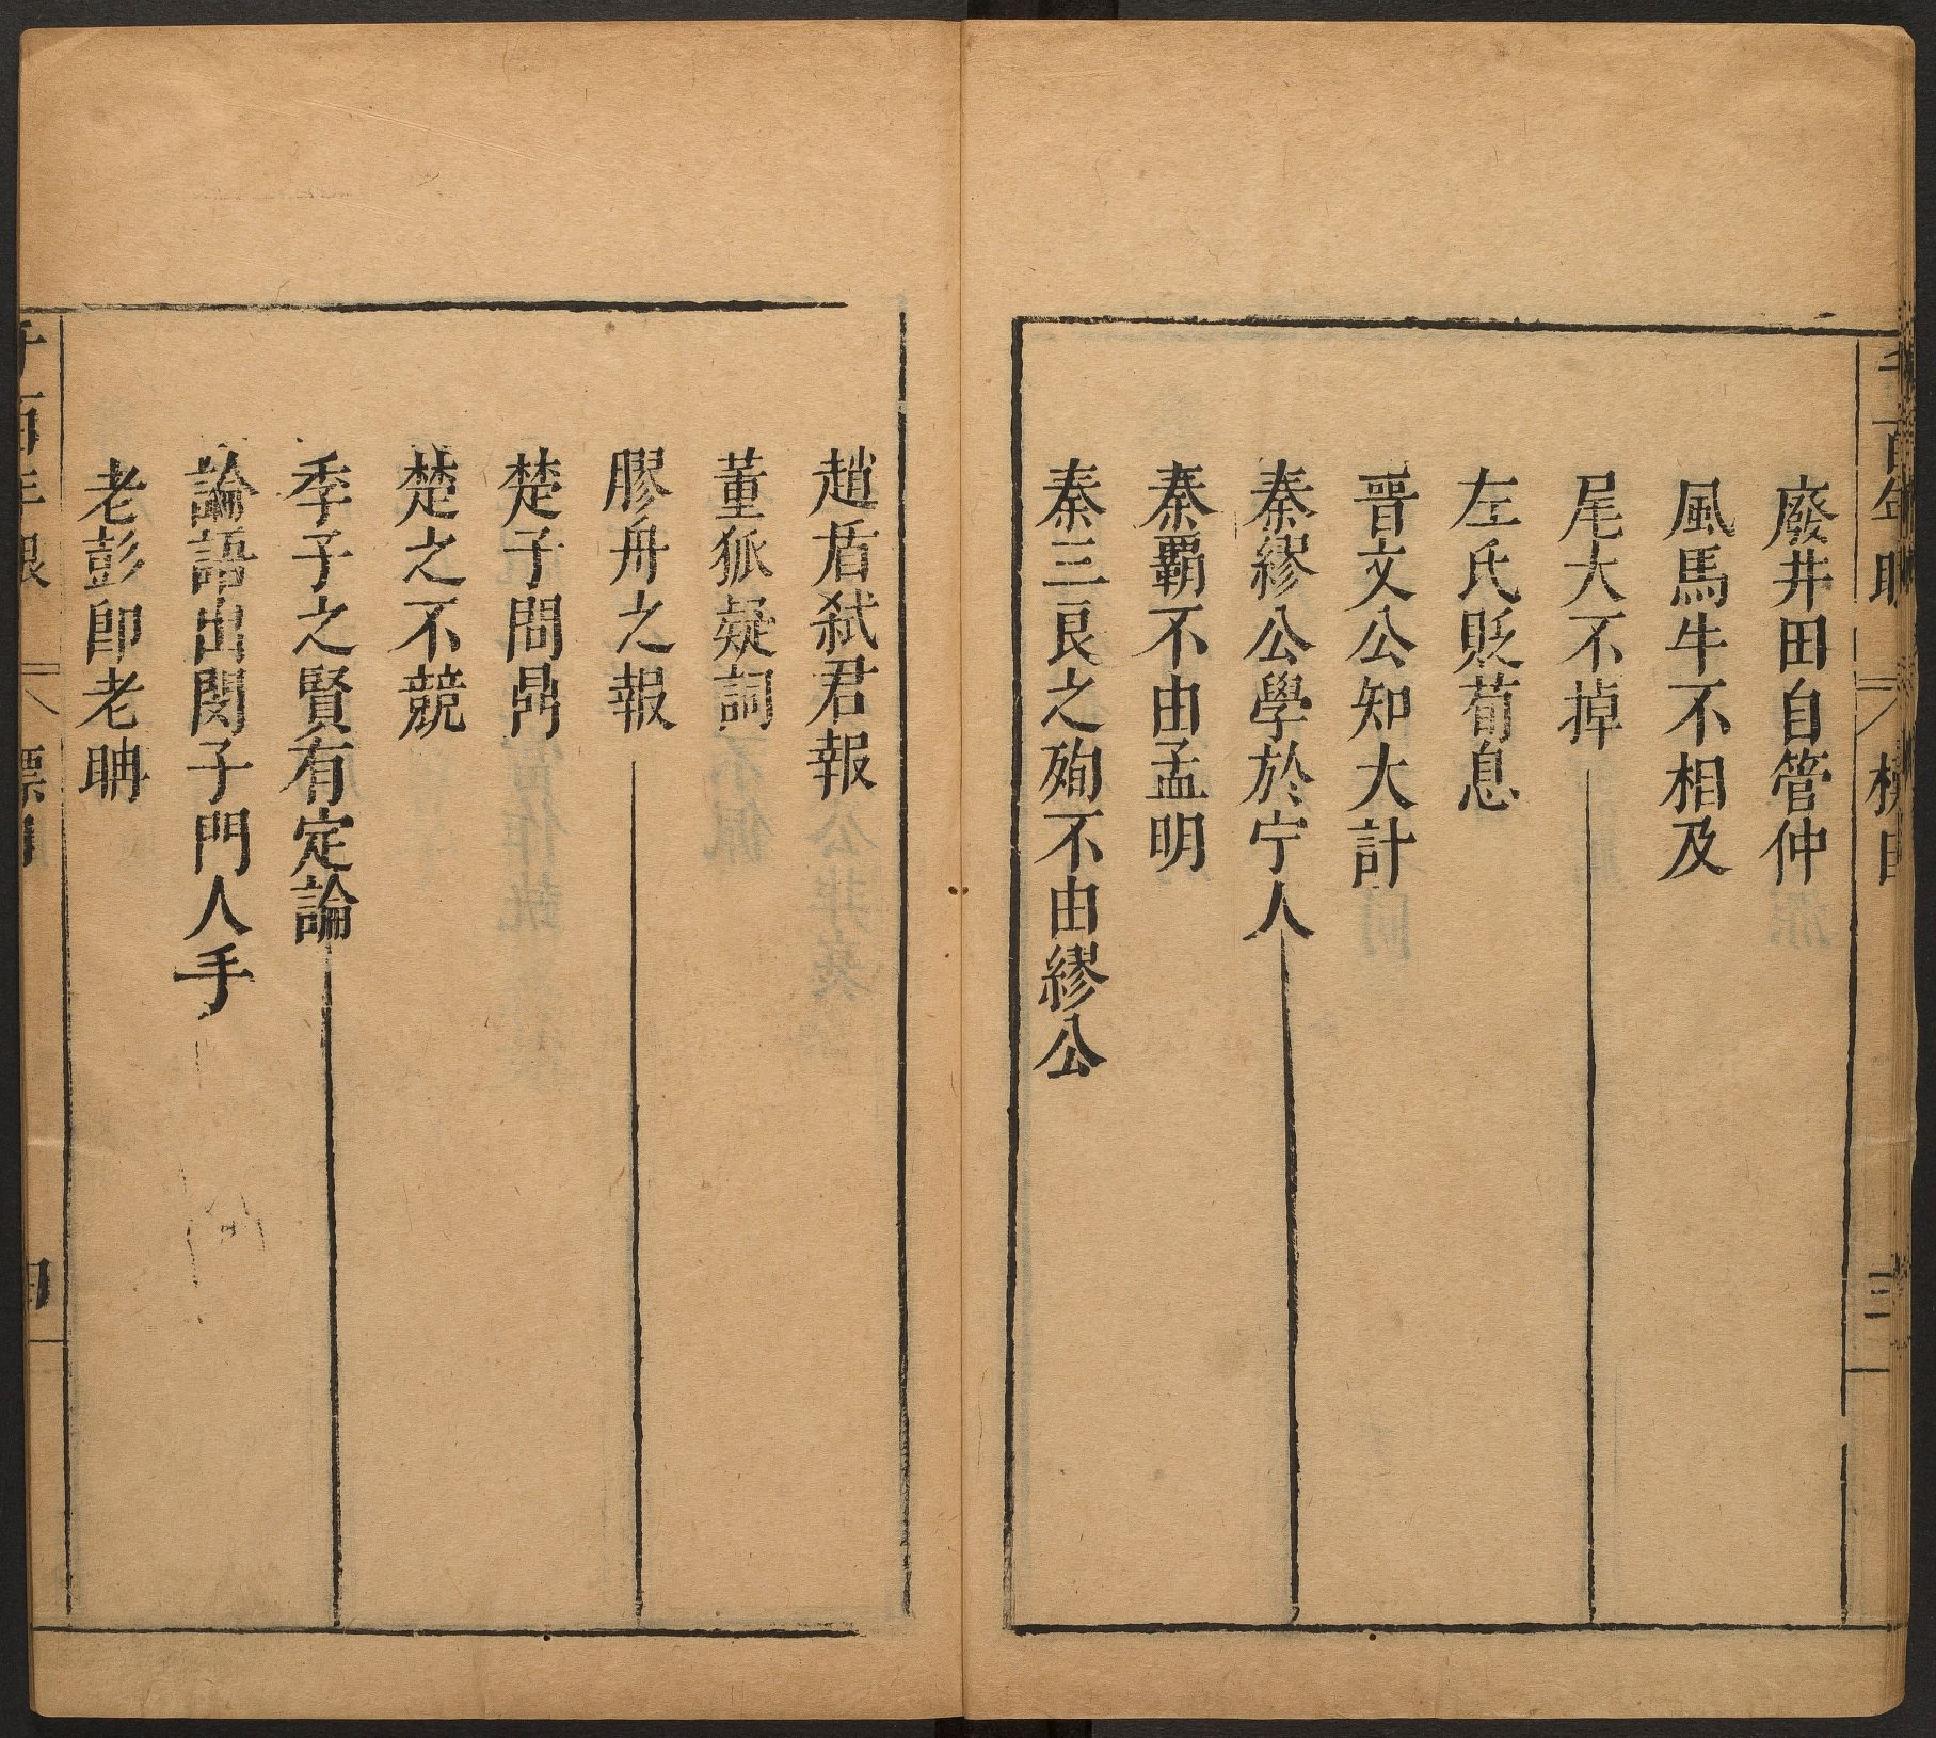 廢井田自管仲
風馬牛不相及
尾大不掉
左氏貶荀息
晉文公知大計
秦繆公學於宁人
秦霸不由孟明
秦三良之殉不由繆公
趙盾弑君報
董狐疑詞
膠舟之報
楚子問鼎
楚之不競
季子之賢有定論
論語出閔子門人手
老彭卽老聃